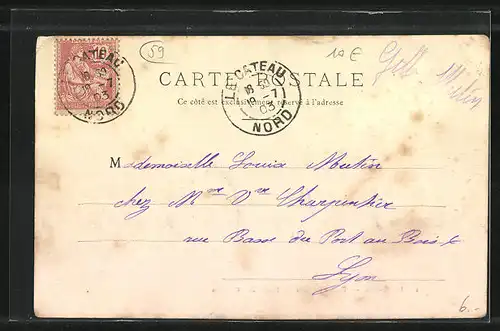 59
10 E
CARTE POSTALE
Ce côté est exclusivement réservé à l'adresse
LE CATEAU
18 30
18 -7
03
NORD
LE CATEAU
18 30
18 -7
03
NORD
Mademoiselle Louise Mutin
chez Mme Vve Charpentier
rue Basse du Port au Bois 6
Lyon
6.-